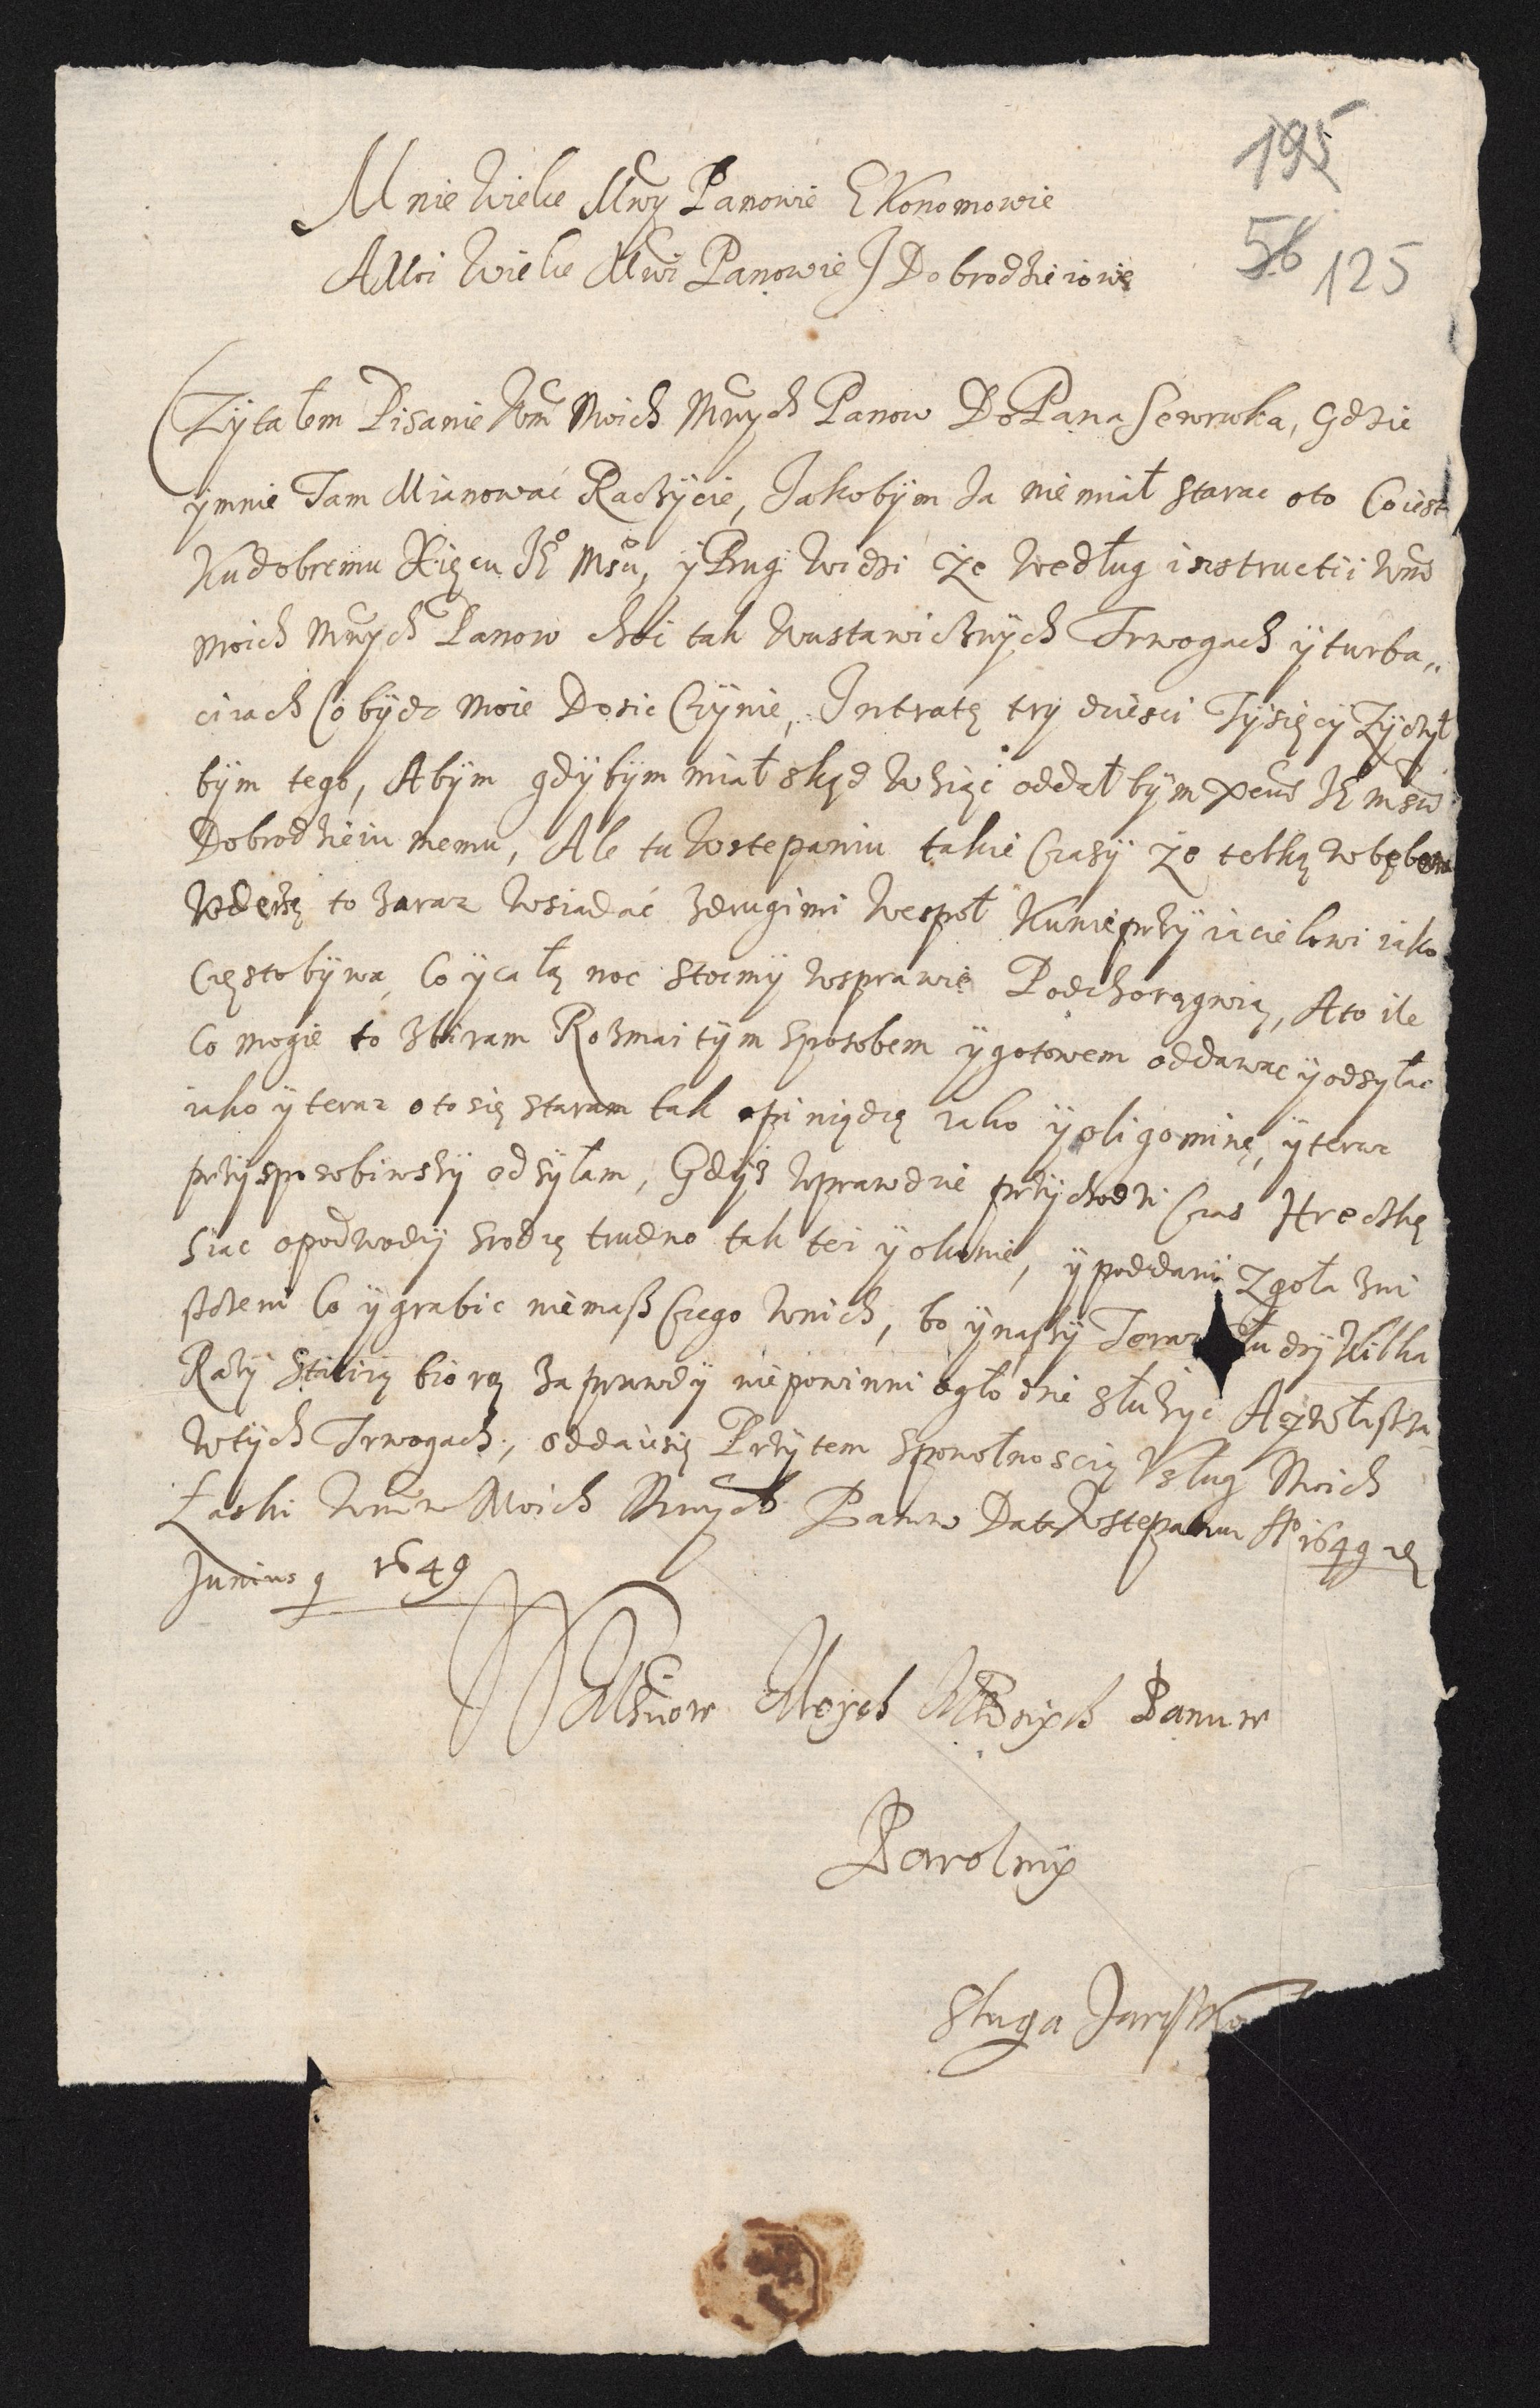 195
56 125
Mnie Wielce Mwy Panowie Ekonomowie
A Moi Wielce Mwi Panowie J Dobrodzieiowie
Czytałem Pisanie Wm Moich Mwych Panow Do Pana Sewruka, Gdzie
ymnie Tam Mianować Raczycie, Jakobym Ja nie miał starac oto Co iest
Kudobremu Xięcu Je° Msci, y Bug widzi Że według instructii Wmo
moich Mwych Panow choc tak wustawicznych Trwogach y turba„
ciiach Co bydz moie Dosic Czynie, Intratę trydziesci Tysięcy Życzył
bym tego, Abym gdybym miał skąd wziąć oddał bym Je Msci
Dobrodzieiu memu, Ale tu Wstepaniu takie Czasy że telką wbęben
Vderzą to zaraz wsiadać zdrugimi wespoł Kunieprzyiacielowi iako
Częstobywa, Co y całą noc stoimy wsprawie Podchorągwią, Ato ile
Co mogie to zbiram Rozmaitym sposobem ygotowem oddawac yodsyłac
iako y teraz otosię staram tak opiniądzę iako y oligominę, yteraz
przysposobiwszy odsyłam, Gdyż wprawdzie przychodzi Czas Hreczkę
siac opodwody srodzę trudno tak tei y okonie, y poddani Zgoła zni
szczeni Co y grabic niemasz Czego wnich, bo ynaszy Teraz łudzy Kilka
Razy Stacią biorą zaprawdy niepowinni ogłodnie słuzyc A zwłaszcza
wtych Trwogach, oddaiusię Przytem spowolnoscią Vsług Moich
Łaski Wmciw Moich Mwych Panow Data Wstepaniu A° 1649 z
Junius 9 1649
WMciow Moych Mwych Panuw
Powolny
Sługa